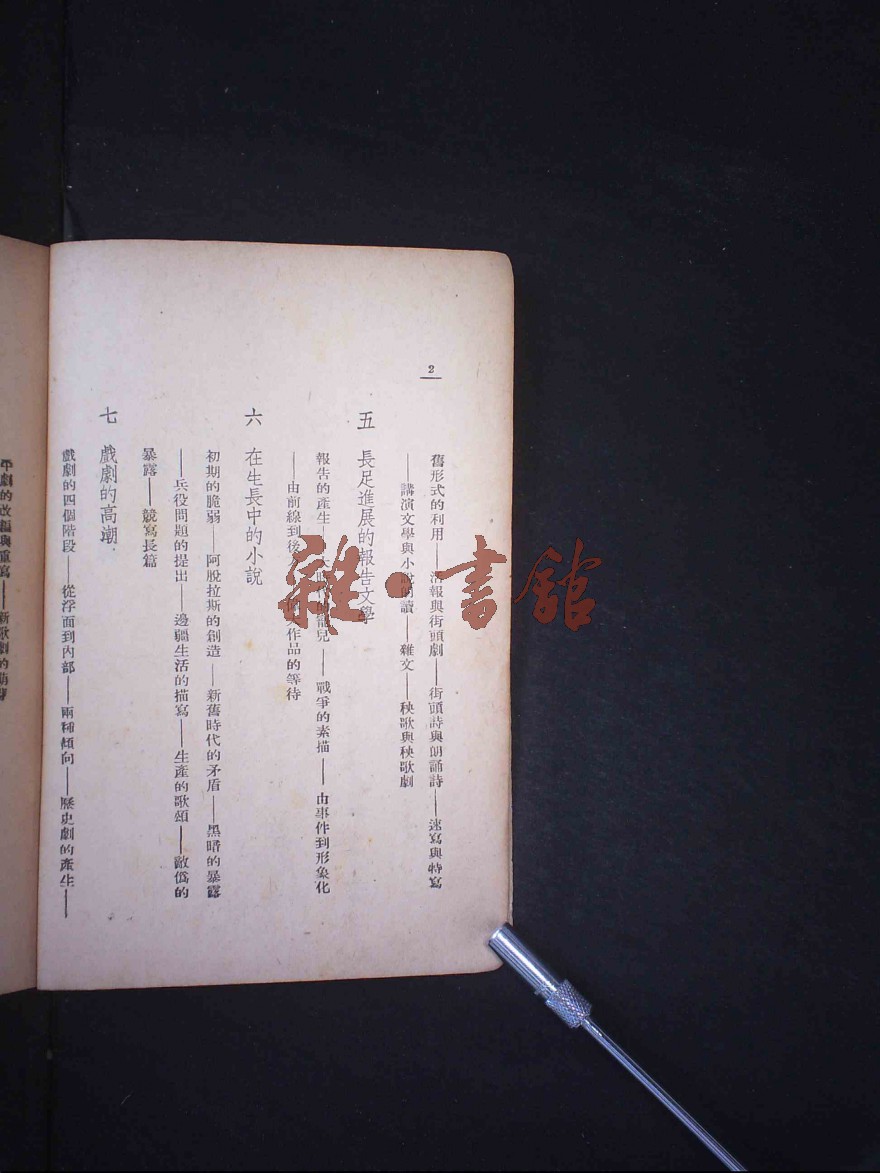 2
舊形式的利用——活報與街頭劇——街頭詩與朗誦詩——速寫與特寫
——講演文學與小說朗讀——雜文——秧歌與秧歌劇
五 長足進展的報告文學
報告的產生——大時代的寵兒——戰爭的素描——由事件到形象化
——由前線到後作品的等待
六 在生長中的小說
初期的脆弱——阿脫拉斯的創造——新舊時代的矛盾——黑暗的暴露
——兵役問題的提出——邊疆生活的描寫——生產的歌頌——敵偽的
暴露——競寫長篇
七 戲劇的高潮
戲劇的四個階段——從浮面到內部——兩種傾向——歷史劇的產生——
平劇的改編與重寫——新歌劇的萌芽
雜·書館